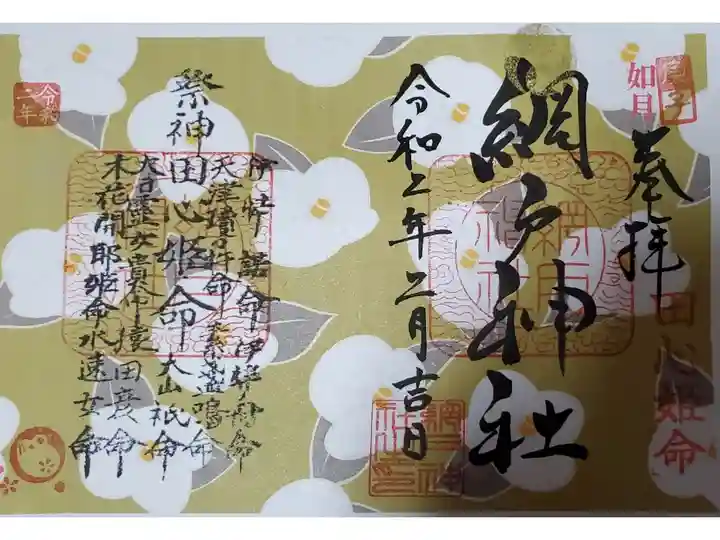 庚子
如月
奉拝
田心姫命
網戸神社
網戸神社
令和二年二月吉日
祭神
田心姫命
伊弉諾命 伊弉冉命
天津瓊々杵命 素盞嗚命
大山祇命
大日孁女貴命 猿田彦命
木花開耶姫命 水速女命
令和
二年